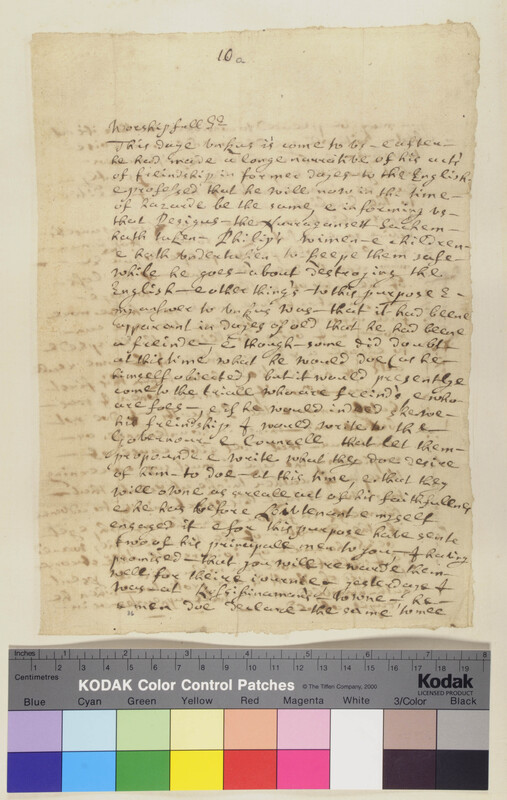 10a
Worshipfull Sr
This daye Unkus is come to us easter
he had made a longe narrative of his acts
of freindship in former dayes to the English
& professed that he will now in the time
of hazarde be the same, & informing us
that the Narragansett Sachem
hath taken Philips women & children
& hath undertaken to keepe them safe
while he goes about destroying the
English & other things to this purpose &
my answer to Unkus was that it had beene
apparent in dayes of old that he had beene
a freinde, & though some did doubt
at this time what he would doe (as he
himself objected) but it would presentlye
come to the triall who are freinds & who
are foes, & if he would indeed shewe
his freindship I would write to the
Governour & Councell that let them
propounde & write what they doe desire
of him to doe at this time, & that they
will owne as a reall act of his faithfullnes
& he has before Leiutenant & myself
engaged it & for this purpose have sente
two of his principall men to you, I having
promised that you will rewarde them
well for theire journie yesterdaye I
was at towne he
& men doe declare the same to mee
Inches 1 2 3 4 5 6 7 8
Centimetres 1 2 3 4 5 6 7 8 9 10 11 12 13 14 15 16 17 18 19
KODAK Color Control Patches © The Tiffen Company, 2000
Kodak
LICENSED PRODUCT
Blue Cyan Green Yellow Red Magenta White 3/Color Black